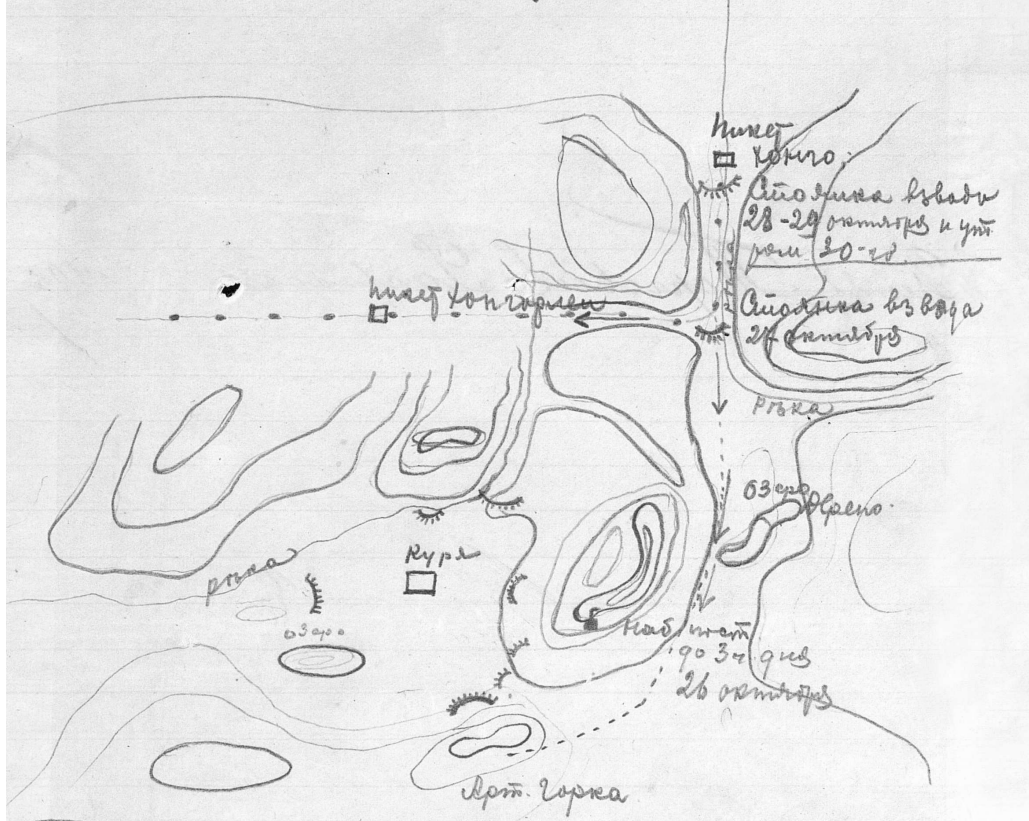 Пикет
Хонго
Стоянка взвода
28-29 октября и ут
ром 30-го.
Пикет Хонгорлен
Стоянка взвода
27 октября
Рѣка
Озеро
Куря
рѣка
озеро
Наб. пост
до 3 ч. дня
26 октября
Арт. Горка